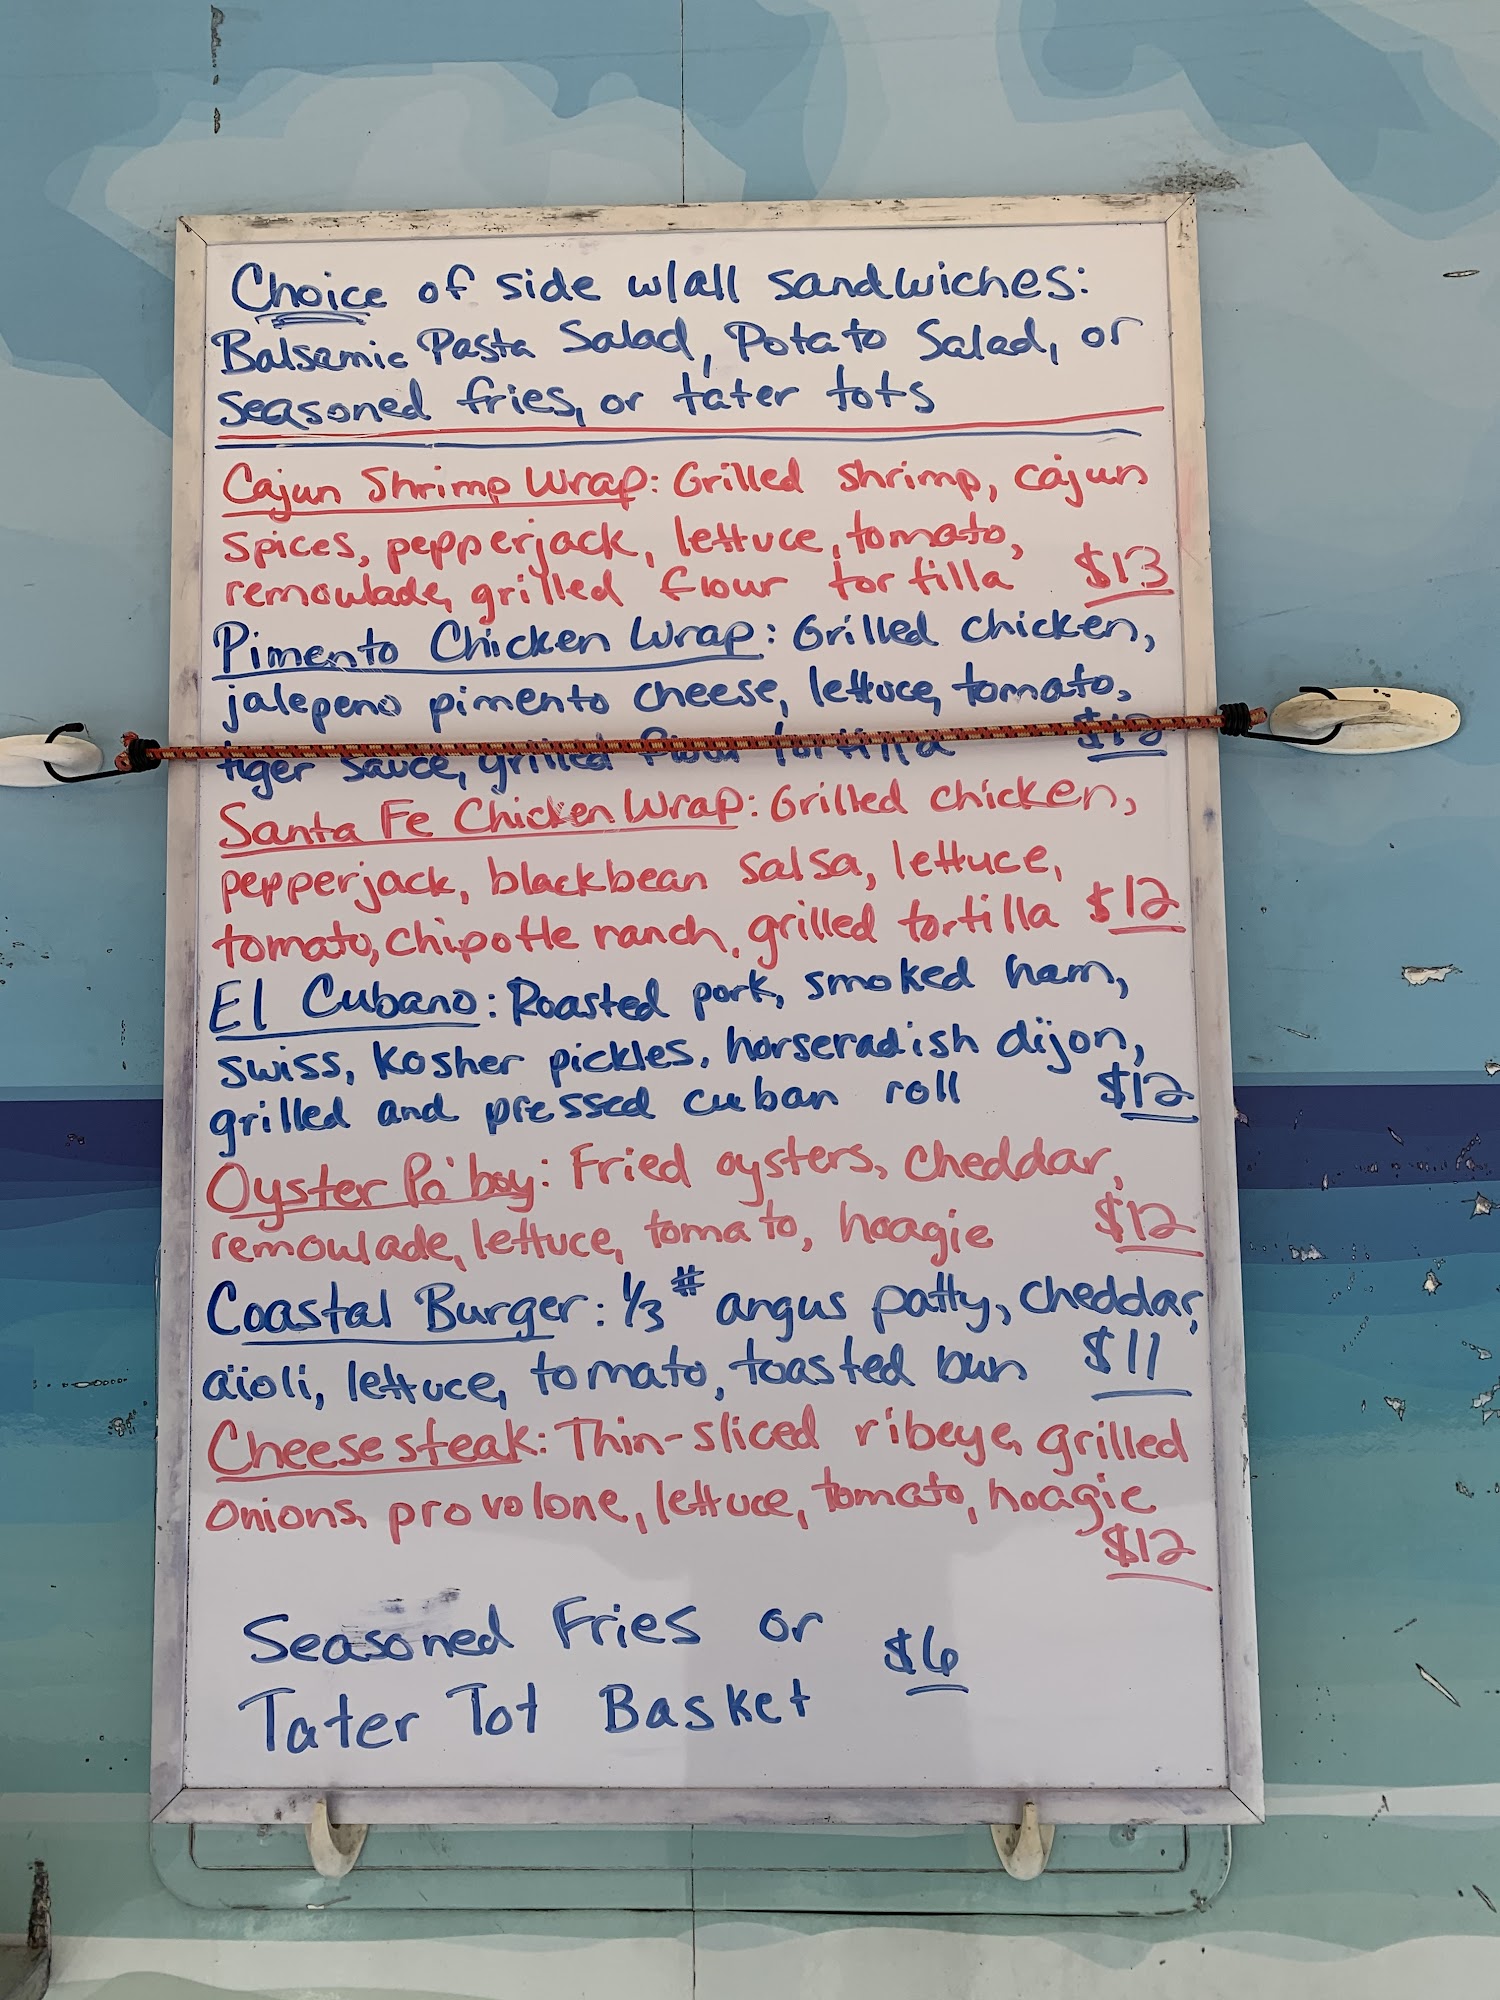 Choice of side w/all sandwiches:
Balsamic Pasta Salad, Potato Salad, or
seasoned fries, or tater tots
Cajun Shrimp Wrap: Grilled shrimp, cajun
spices, pepperjack, lettuce, tomato,
remoulade, grilled flour tortilla $13
Pimento Chicken Wrap: Grilled chicken,
jalepeno pimento cheese, lettuce, tomato,
tiger sauce, grilled flour tortilla $12
Santa Fe Chicken Wrap: Grilled chicken,
pepperjack, blackbean salsa, lettuce,
tomato, chipotle ranch, grilled tortilla $12
El Cubano: Roasted pork, smoked ham,
swiss, kosher pickles, horseradish dijon,
grilled and pressed cuban roll $12
Oyster Po'boy: Fried oysters, cheddar,
remoulade, lettuce, tomato, hoagie $12
Coastal Burger: 1/3 # angus patty, cheddar,
aïoli, lettuce, tomato, toasted bun $11
Cheesesteak: Thin-sliced ribeye, grilled
onions, provolone, lettuce, tomato, hoagie
$12
Seasoned Fries or $6
Tater Tot Basket